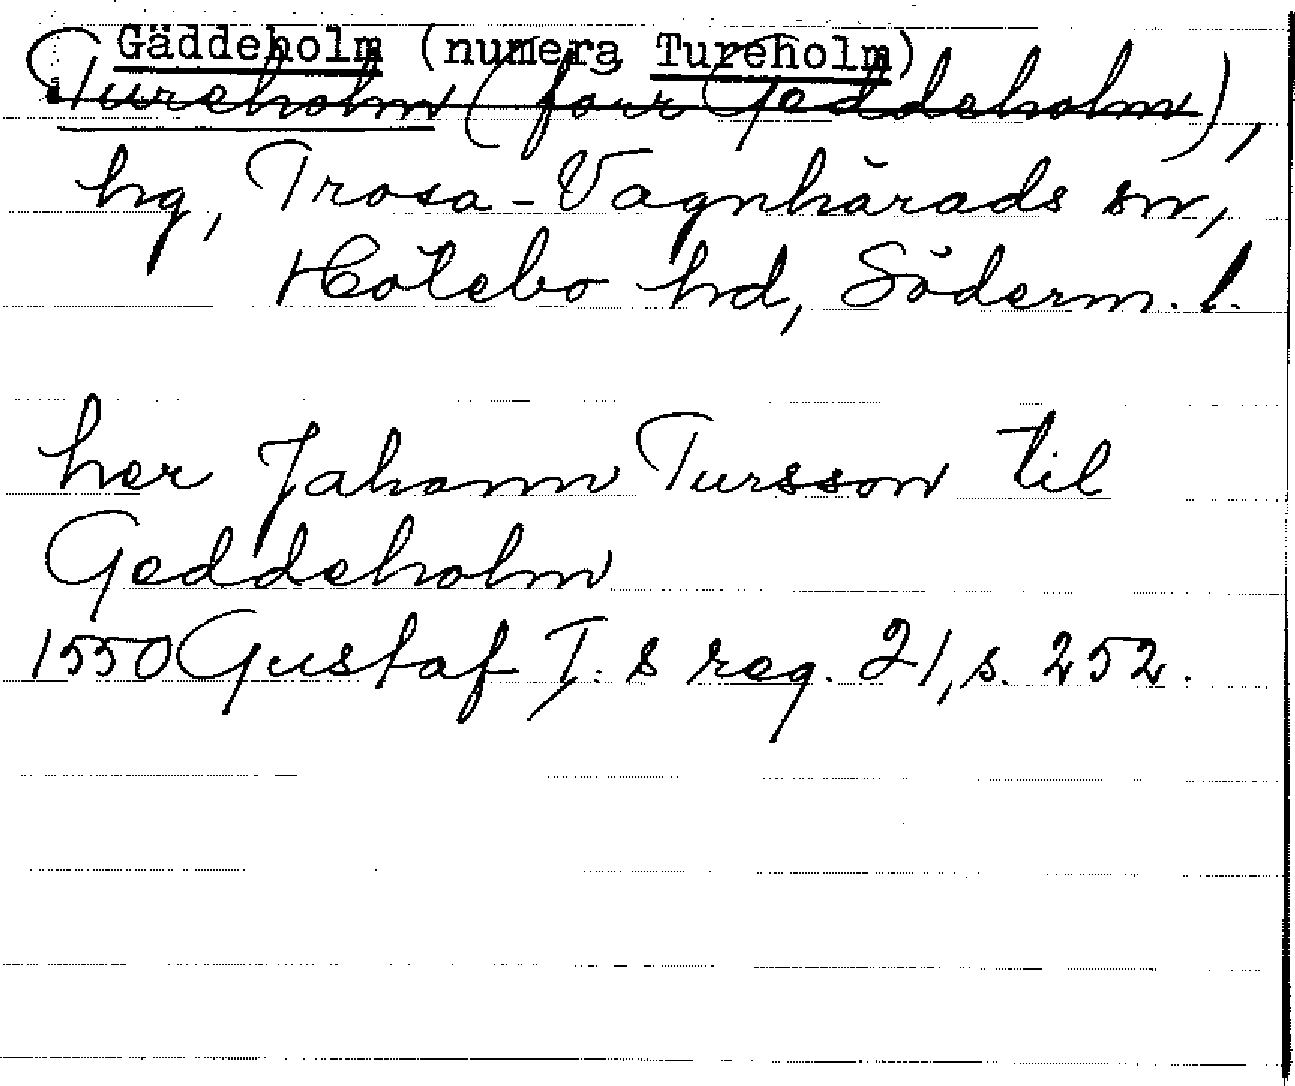 Gäddeholm (numera Tureholm)
Tureholm (förr Geddeholm),
hg, Trosa-Vagnhärads sn,
Hölebo hd, Söderm. l.
her Jahann Tursson til
Geddeholm
1550 Gustaf I:s reg. 21, s. 252.